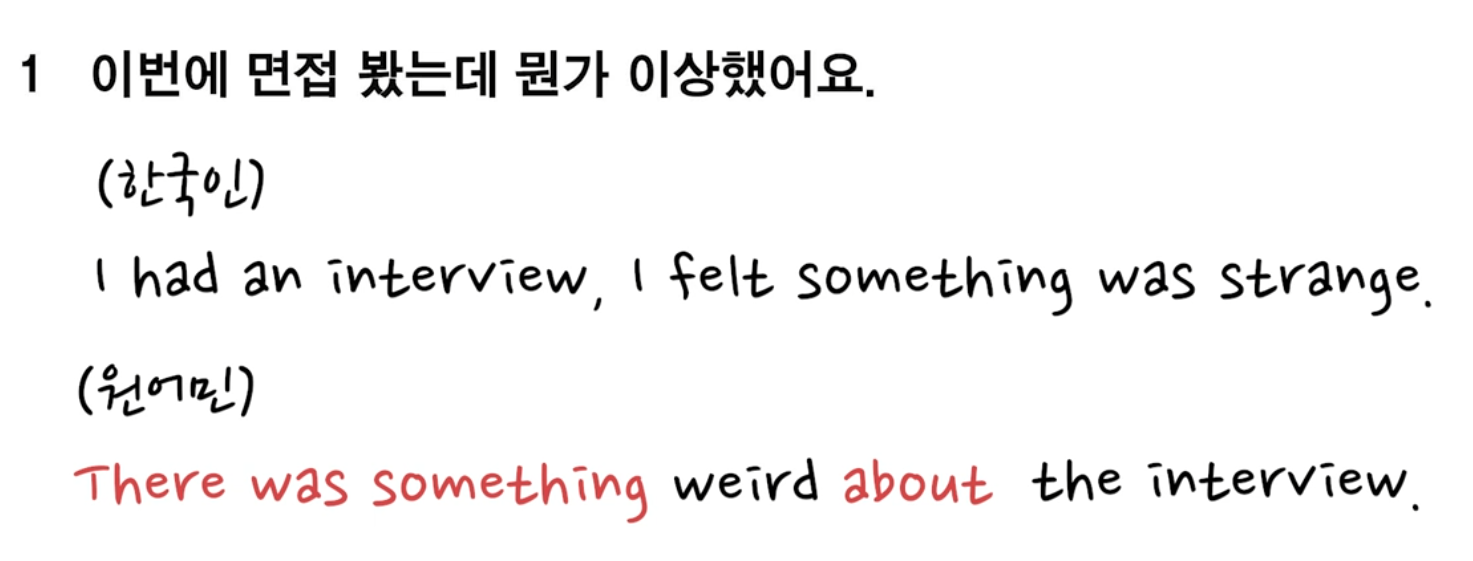 1 이번에 면접 봤는데 뭔가 이상했어요.
(한국인)
I had an interview, I felt something was strange.
(원어민)
There was something weird about the interview.